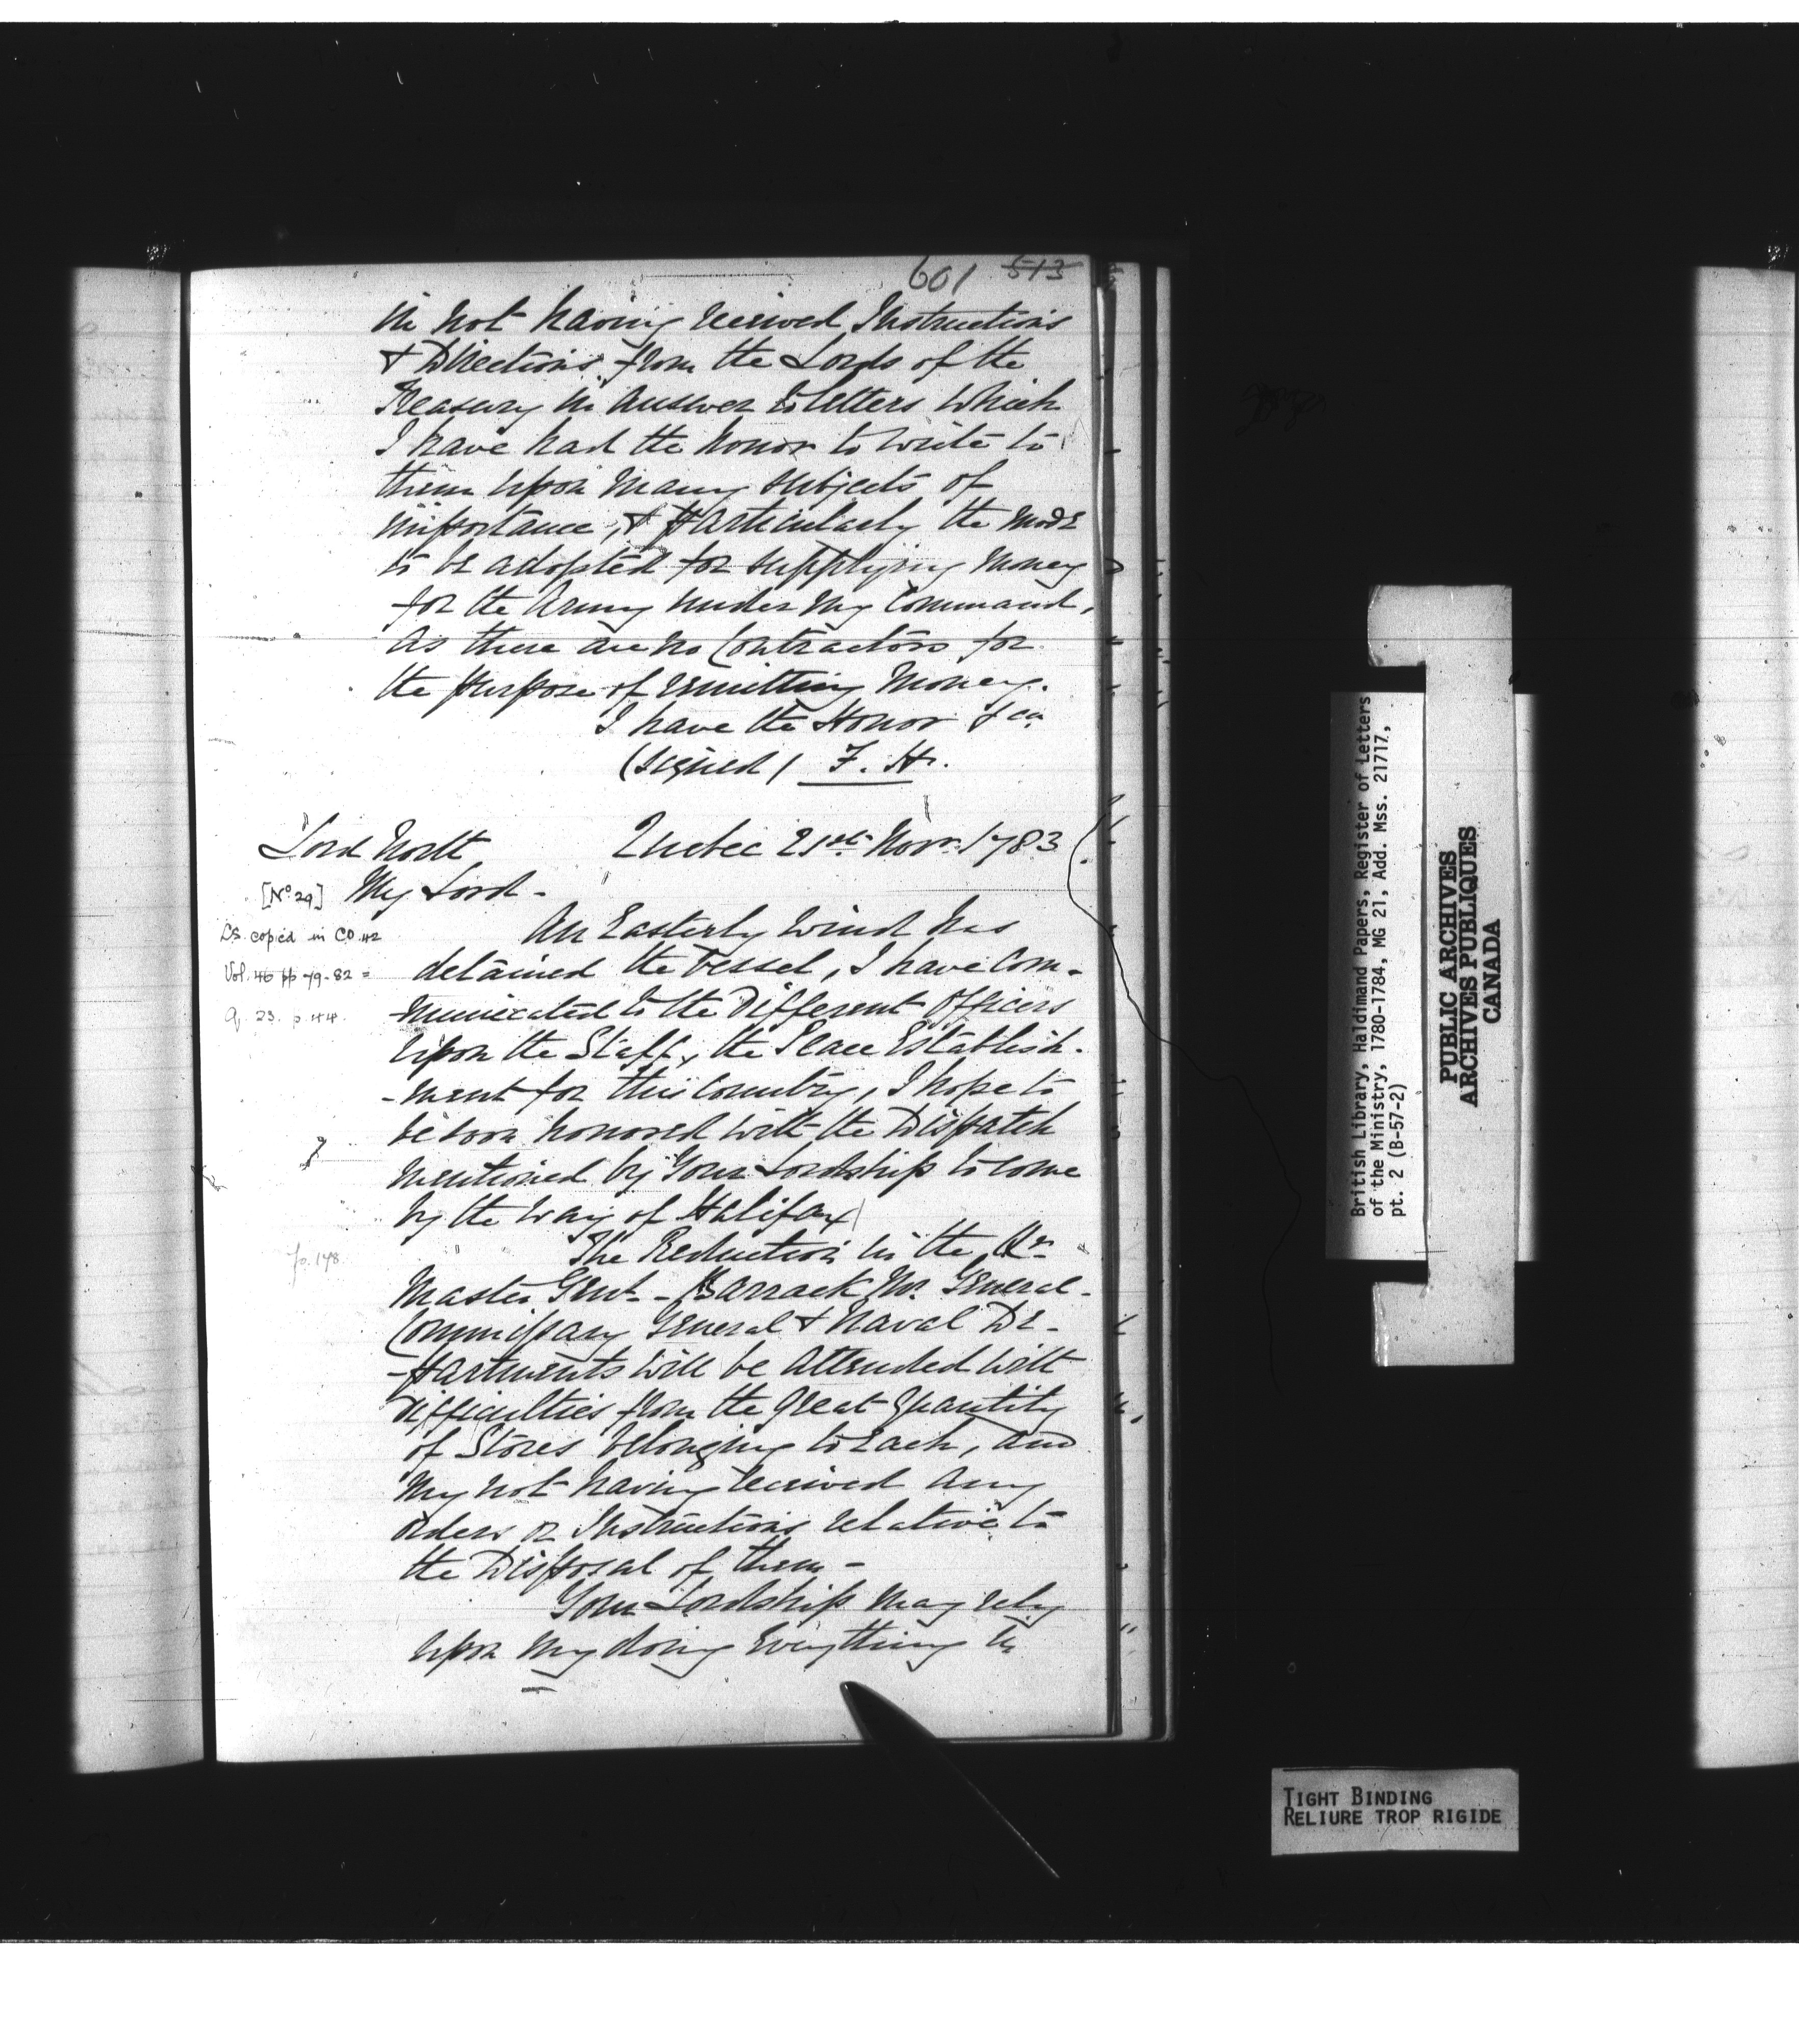 601 513
in not having received Instructions
& Directions from the Lords of the
Treasury in Answer to letters which
I have had the honor to write to
them upon many subjects of
importance, & particularly the mode
to be adopted for supplying money
for the Army under my Command,
As there are no Contractors for
the purpose of remitting Money.
I have the Honor &ca
(signed) F. H.
Lord North Quebec 21st Novr. 1783
[No. 29] My Lord -
L.S. copied in C.O. 42
Vol. 46 pp 79-82 =
Q. 23. p. 44.
An Easterly wind has
detained the Vessel, I have Com-
-municated to the Different Officers
upon the Staff, the Peace Establish-
-ment for this Country, I hope to
be soon honored with the Dispatch
mentioned by Your Lordship to come
by the way of Halifax
p. 148
The Reduction in the Qr.
Master Genl. - Barrack Mr. General -
Commissary General & Naval De-
-partments will be attended with
Difficulties from the great Quantity
of Stores belonging to Each, and
my not having received any
orders or Instructions relative to
the Disposal of them -
Your Lordship may rely
upon my doing Everything in
British Library, Haldimand Papers, Register of Letters
of the Ministry, 1780-1784, MG 21, Add. Mss. 21717,
pt. 2 (B-57-2)
PUBLIC ARCHIVES
ARCHIVES PUBLIQUES
CANADA
TIGHT BINDING
RELIURE TROP RIGIDE